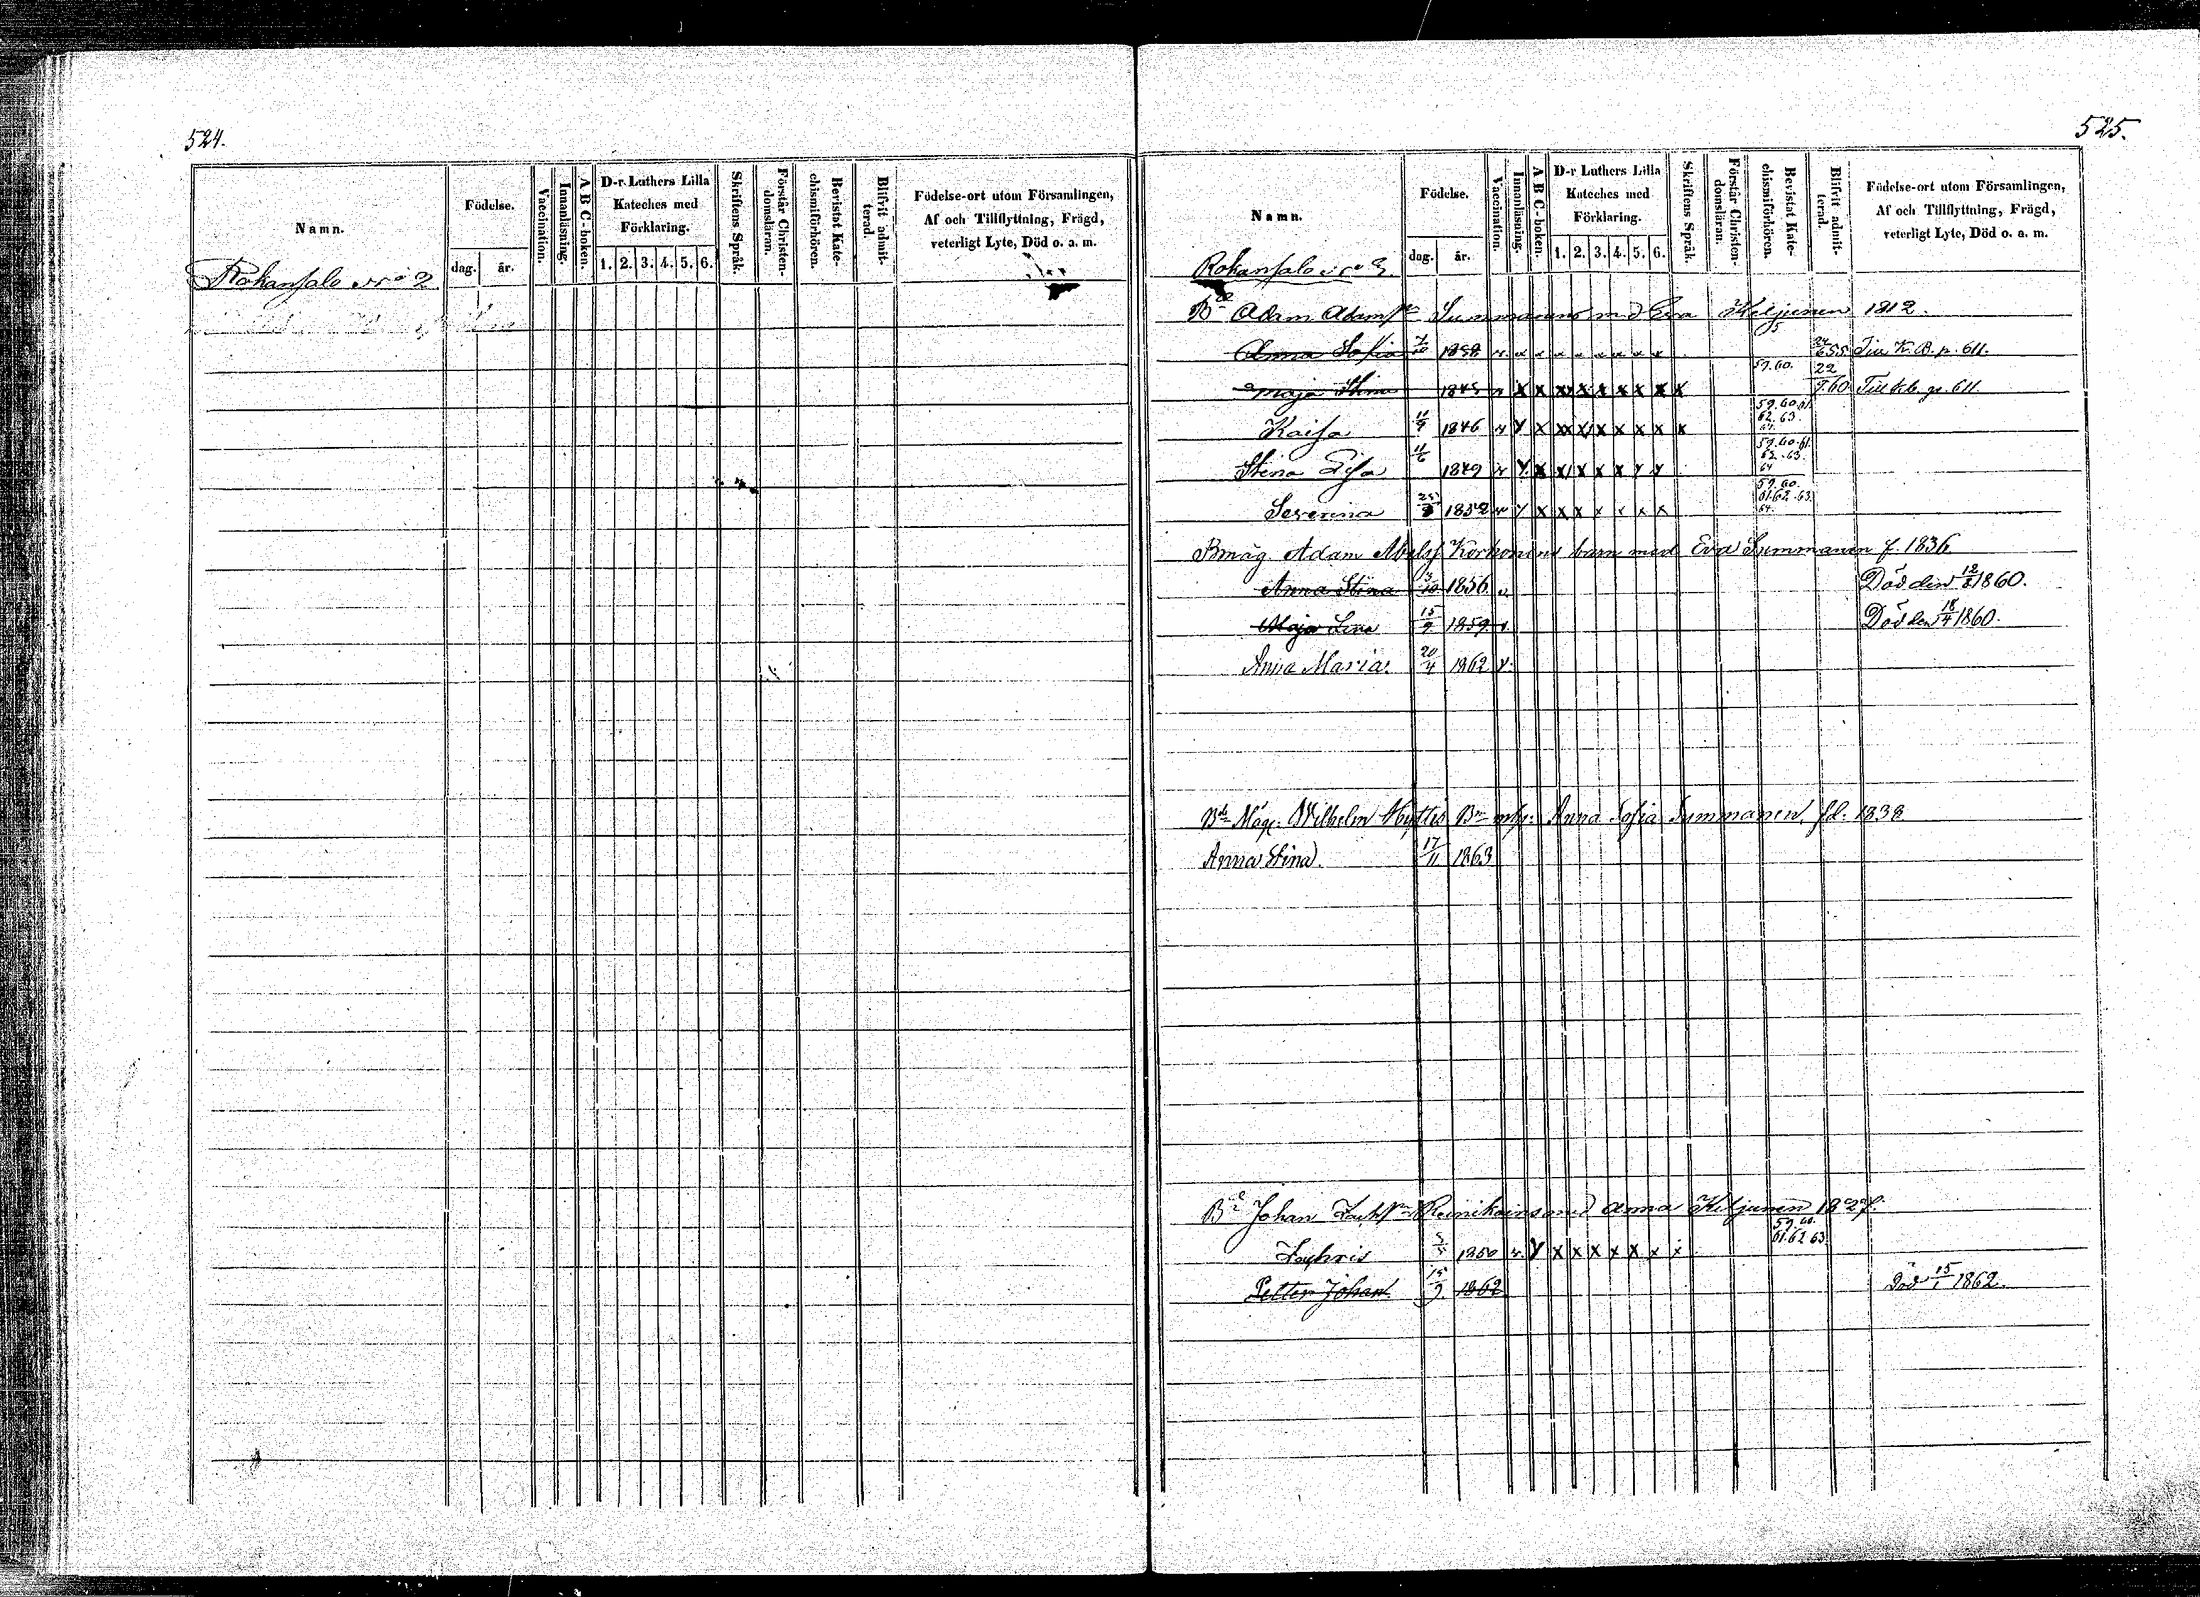 524.
Namn.
Födelse.
dag. år.
Vaccination.
Innanläsning.
A B C-boken.
D-r Luthers Lilla Kateches med Förklaring.
1. 2. 3. 4. 5. 6.
Skriftens Språk.
Förstår Christendomsläran.
Bevistat Katechismiförhören.
Blifvit admitterad.
Födelse-ort utom Församlingen, Af och Tillflyttning, Frägd, veterligt Lyte, Död o. a. m.
Rokansalo No 2
525.
Namn.
Födelse.
dag. år.
Vaccination.
Innanläsning.
A B C-boken.
D-r Luthers Lilla Kateches med Förklaring.
1. 2. 3. 4. 5. 6.
Skriftens Språk.
Förstår Christendomsläran.
Bevistat Katechismiförhören.
Blifvit admitterad.
Födelse-ort utom Församlingen, Af och Tillflyttning, Frägd, veterligt Lyte, Död o. a. m.
Rokansalo No
Adam Adamss Summanens m d Eva Kiljunen 1812.
Anna Sofia 1838 v x x x x x x x x 55 Till K. B. p. 611.
Maja Stina 1845 v x x xx x x x x x x 59.60. 22 60 Till k.b. p. 611.
Kaisa 1846 v y x xx x x x x x x 59.60.61. 62.63. 64.
Stina Lisa 1849 v y x x x x x y y 59.60.61. 62.63. 64
Severina 1852 v y x x x x x x x 59.60. 61.62.63. 64.
Bmåg. Adam Korhonens barn med Eva Summanen f. 1836
Anna Stina 1856 v Död den 12/8 1860.
Maja Lena 15/9 1859 v. Död den 18/4 1860.
Anna Maria. 20/4 1862 v.
Måg. Wilhelm Hyttis Anna Sofia Summanen, fd. 1838
Anna Stina. 17/11 1863
Johan Reinikains med Anna Kiljunen 1827.
1850 v. y x x x x x x x 59.60. 61.62.63.
Petter Johan. 15/9. 1862 Död 15/1 1862.